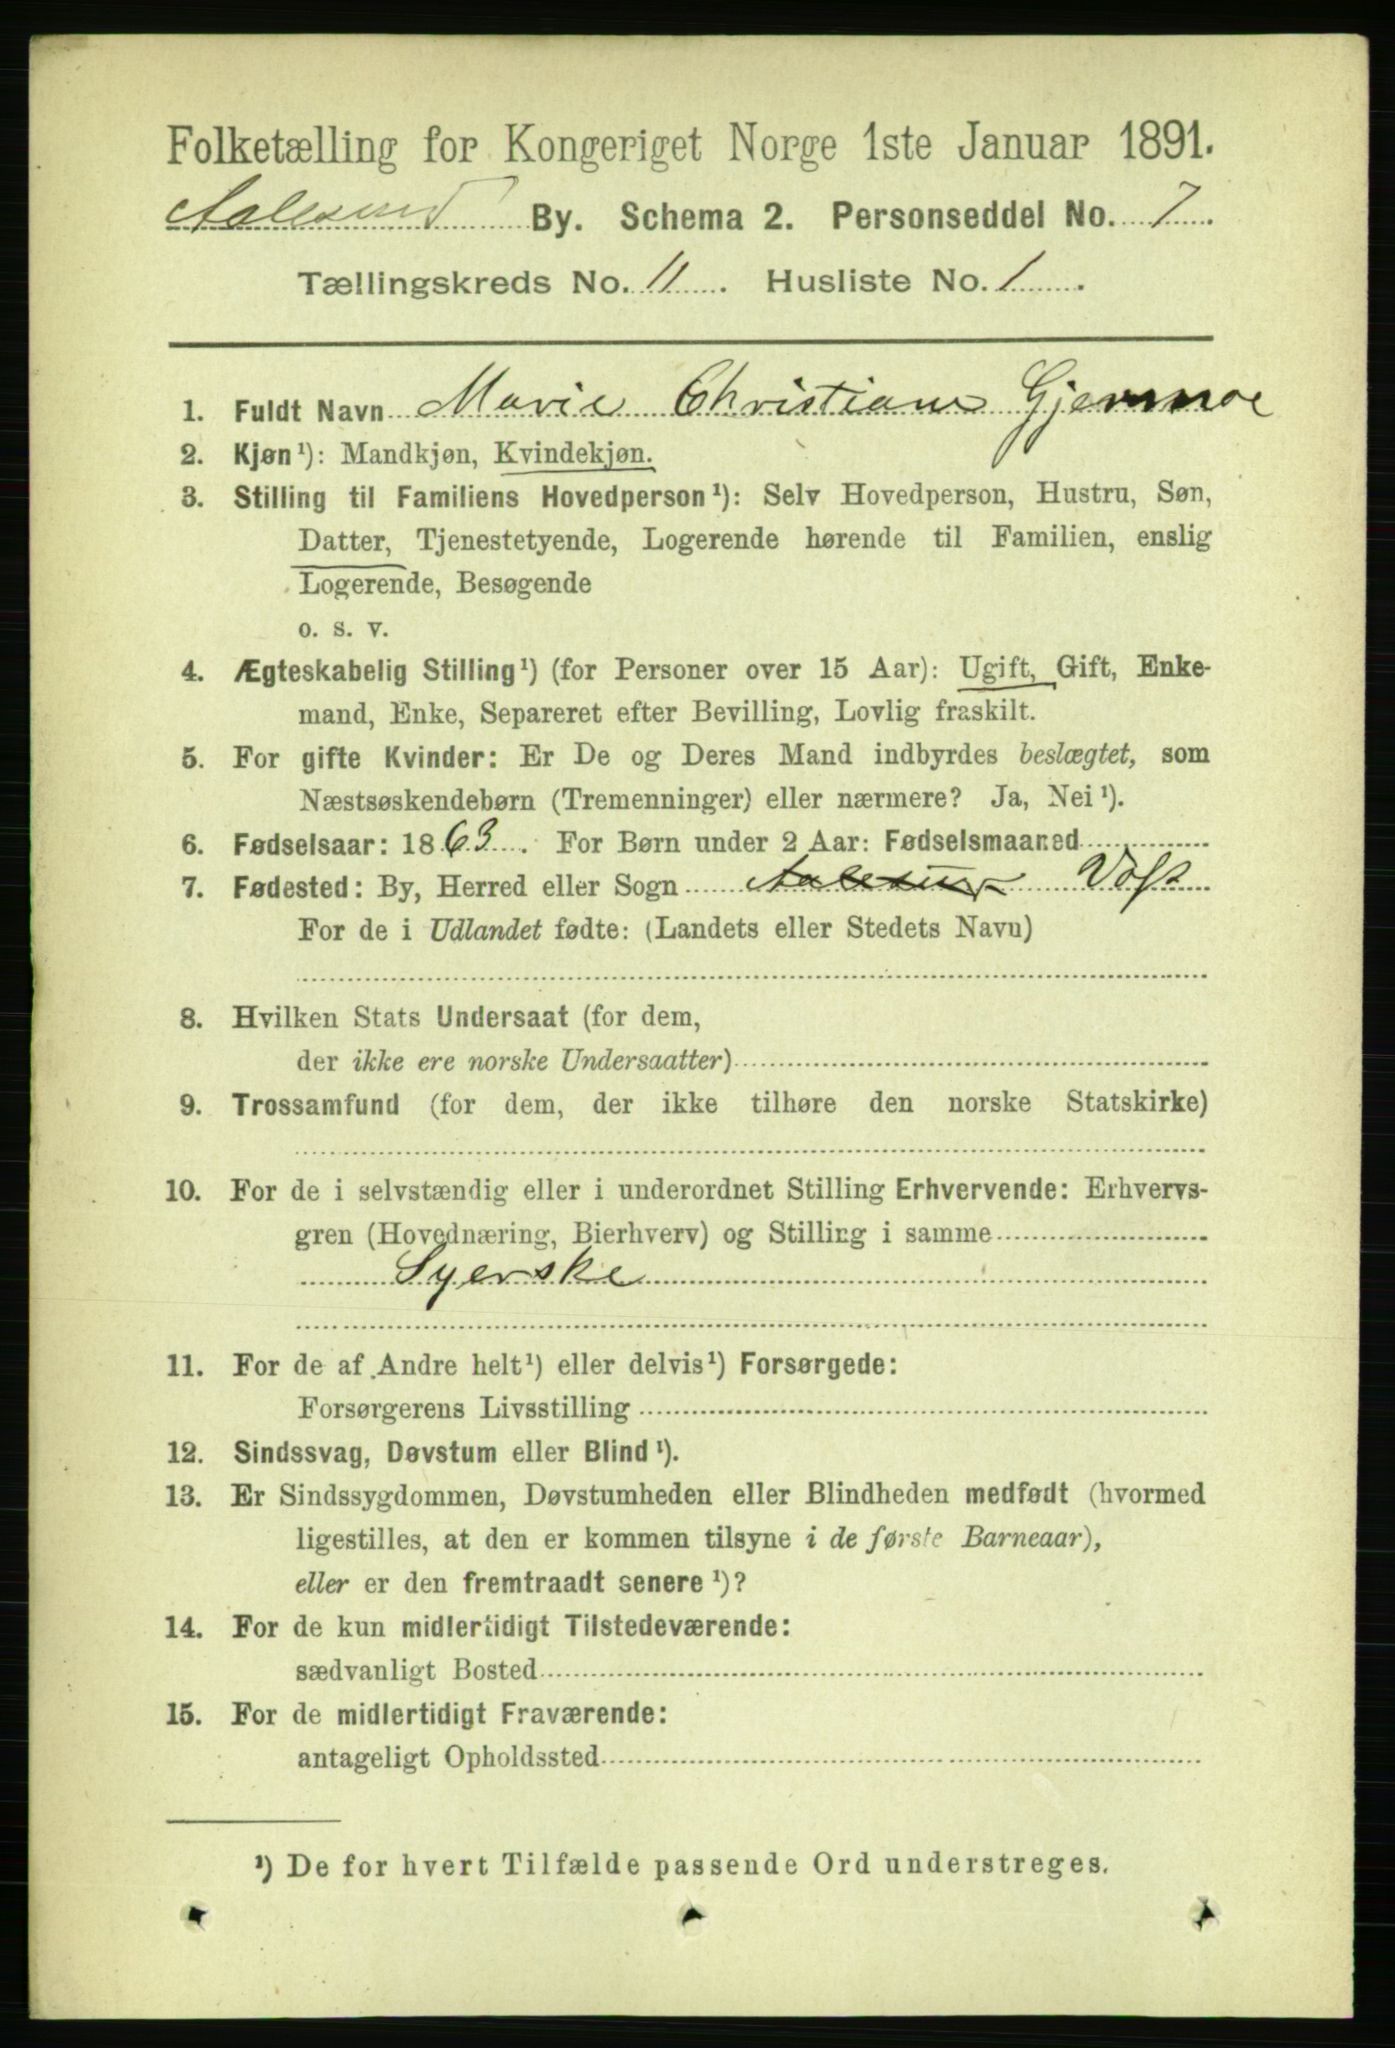 Folketælling for Kongeriget Norge 1ste Januar 1891.
Aalesund By. Schema 2. Personseddel No. 7.
Tællingskreds No. 11. Husliste No. 1.
1. Fuldt Navn Marie Christiane
2. Kjøn¹): Mandkjøn, Kvindekjøn.
3. Stilling til Familiens Hovedperson¹): Selv Hovedperson, Hustru, Søn,
Datter, Tjenestetyende, Logerende hørende til Familien, enslig
Logerende, Besøgende
o. s. v.
4. Ægteskabelig Stilling¹) (for Personer over 15 Aar): Ugift, Gift, Enke-
mand, Enke, Separeret efter Bevilling, Lovlig fraskilt.
5. For gifte Kvinder: Er De og Deres Mand indbyrdes beslægtet, som
Næstsøskendebørn (Tremenninger) eller nærmere? Ja, Nei¹).
6. Fødselsaar: 1863. For Børn under 2 Aar: Fødselsmaaned
7. Fødested: By, Herred eller Sogn Aalesund
For de i Udlandet fødte: (Landets eller Stedets Navn)
8. Hvilken Stats Undersaat (for dem,
der ikke ere norske Undersaatter)
9. Trossamfund (for dem, der ikke tilhøre den norske Statskirke)
10. For de i selvstændig eller i underordnet Stilling Erhvervende: Erhvervs-
gren (Hovednæring, Bierhverv) og Stilling i samme
Syerske
11. For de af Andre helt¹) eller delvis¹) Forsørgede:
Forsørgerens Livsstilling
12. Sindssvag, Døvstum eller Blind¹).
13. Er Sindssygdommen, Døvstumheden eller Blindheden medfødt (hvormed
ligestilles, at den er kommen tilsyne i de første Barneaar),
eller er den fremtraadt senere¹)?
14. For de kun midlertidigt Tilstedeværende:
sædvanligt Bosted
15. For de midlertidigt Fraværende:
antageligt Opholdssted
¹) De for hvert Tilfælde passende Ord understreges.